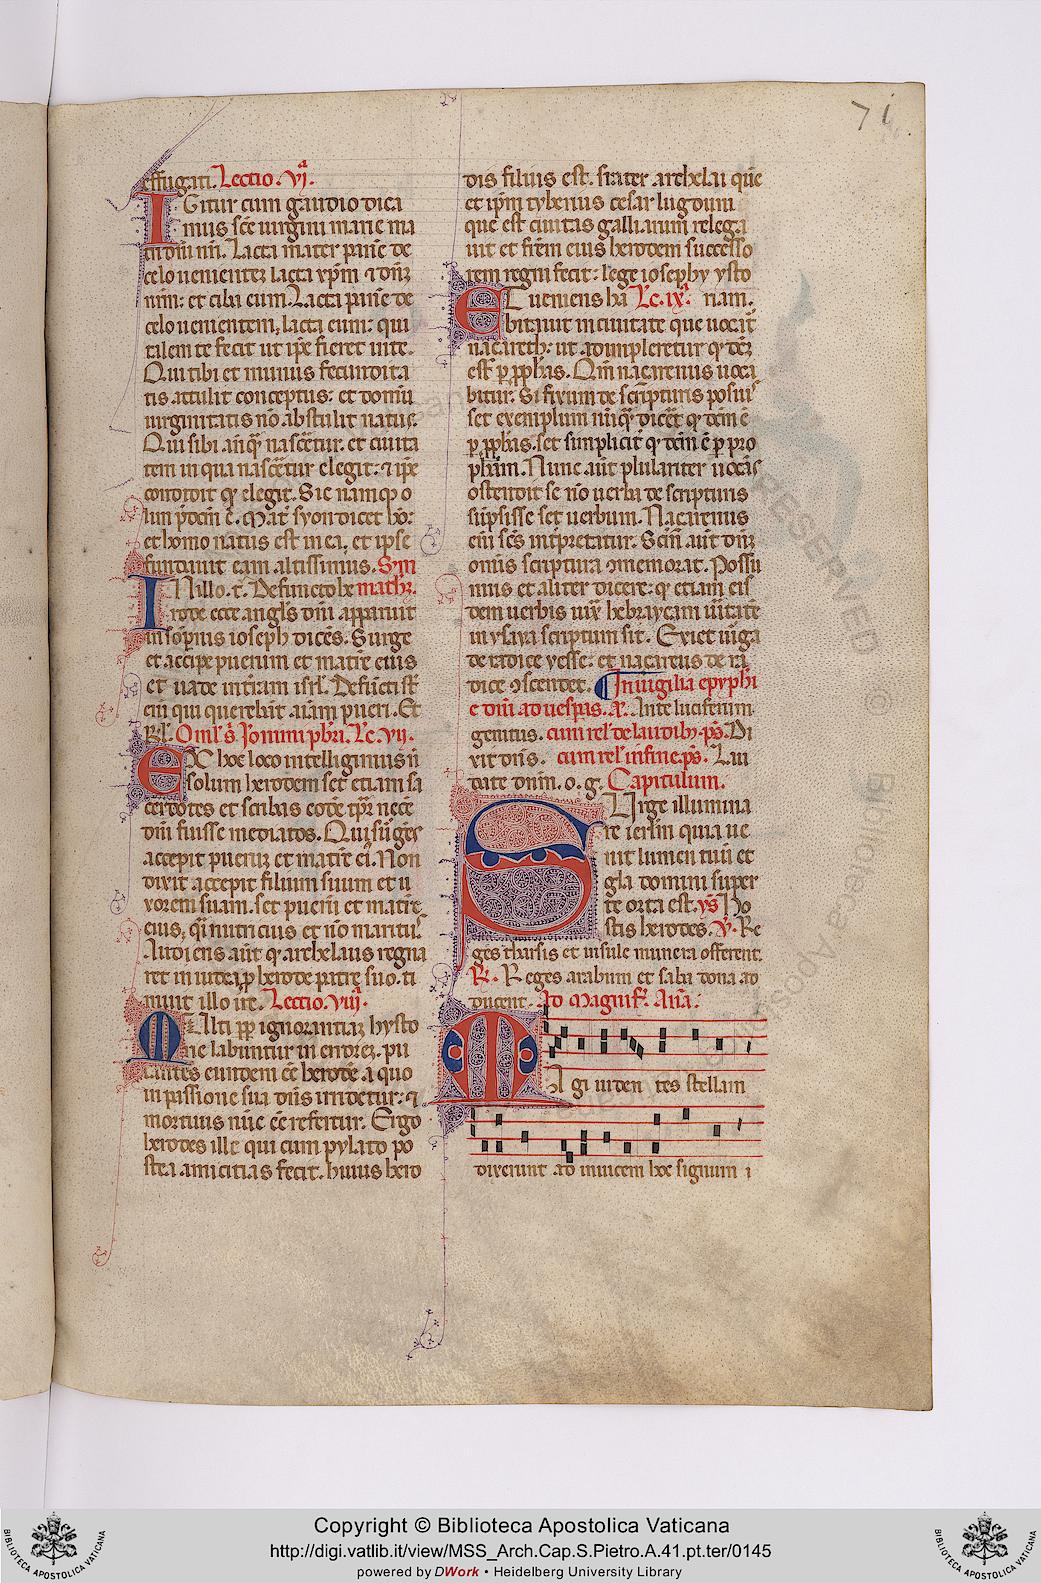 71.
effugati. Lectio. vj.
IGitur cum gaudio dica
mus sce uirgini marie ma
tri dni nri. Lacta mater pane de
celo uenientez lacta xpm ⁊ dnz
nrm: et cibu eum. Lacta pane de
celo uenientem, lacta eum: qui
talem te fecit ut ipe fieret inte.
Qui tibi et munus fecundita
tis attulit conceptus: et donu
uirginitatis no abstulit natus.
Qui sibi anq nasceretur. et ciuita
tem in qua nasceretur elegit: ⁊ ipe
condidit q elegit. Sic namq o
lim pdcm e. Mat syon dicet ho:
et homo natus est in ea, et ipse
fundauit eam altissimus. Sm
INillo. t. Defuncto he math.
rode ecce angls dni apparuit
in sopnis ioseph dices. Surge
et accipe puerum et matre eius
et uade in tram isrl. Defuncti st
eni qui querebat aiam pueri. Et
Rl. Omls. Jonimi pbri. Lc. vij.
EX hoc loco intelligimus n
solum herodem set etiam sa
cerdotes et scribas eode tpr nece
dni fuisse mediatos. Qui surges
accepit pueru et matre ei. Non
dixit accepit filium suum et u
xorem suam. set pueru et matre
eius, qi nutricius et no maritus.
Audiens aut q archelaus regna
ret in iudea p herode patre suo. ti
muit illo ire. Lectio. viij.
MUlti pp ignorantiaz hysto
rie labuntur in errorez. pu
tantes eundem ee herode. a quo
in passione sua dns irridetur: ⁊
mortuus nuc ee refertur. Ergo
herodes ille qui cum pylato po
stea amicitias fecit. huius hero
dis filius est. frater archelai que
et ipm tyberius cesar lugduni
que est ciuitas galliarum relega
uit et frem eius herodem successo
rem regni fecit: lege iosephy ysto
ET ueniens ha Lc. ix. riam.
bitauit in ciuitate que uocat
naçareth: ut adimpleretur q dcz
est p pphas. Qm naçarenus uoca
bitur. Si fixum de scripturis posuis
set exemplum nuq diceret q dcm e
p pphas. set simpliciter q dcm e p pro
pham. Nunc aut pluraliter uocans
ostendit se no uerba de scripturis
supsisse set uerbum. Naçarenus
eni scs intpretatur. Scm aut dnz
omis scriptura ɔmemorat. Possu
mus et aliter dicere: q etiam eis
dem uerbis iux hebraycam uitate
in ysaya scriptum sit. Exiet uirga
de radice yesse: et naçareus de ra
dice ɔscendet. In uigilia epyphi
e dni ad uesperas. a. Ante luciferum
genitus. cum rel de laudib. ps. Di
xit dns. cum rel in fine. ps. Lau
date dnm. o. g. Capitulum.
SUrge illumina
re ierlm quia ue
nit lumen tuu et
gla domini super
te orta est. ys Ho
stis herodes. V. Re
ges tharsis et insule munera offerent.
R. Reges arabum et saba dona ad
ducent. Ad Magnif. Ana.
MAgi uiden tes stellam
dixerunt ad inuicem hoc signum i
PRESERV
© Biblioteca Apostolica Vaticana
BIBLIOTECA APOSTOLICA VATICANA
Copyright © Biblioteca Apostolica Vaticana
http://digi.vatlib.it/view/MSS_Arch.Cap.S.Pietro.A.41.pt.ter/0145
powered by DWork • Heidelberg University Library
BIBLIOTECA APOSTOLICA VATICANA